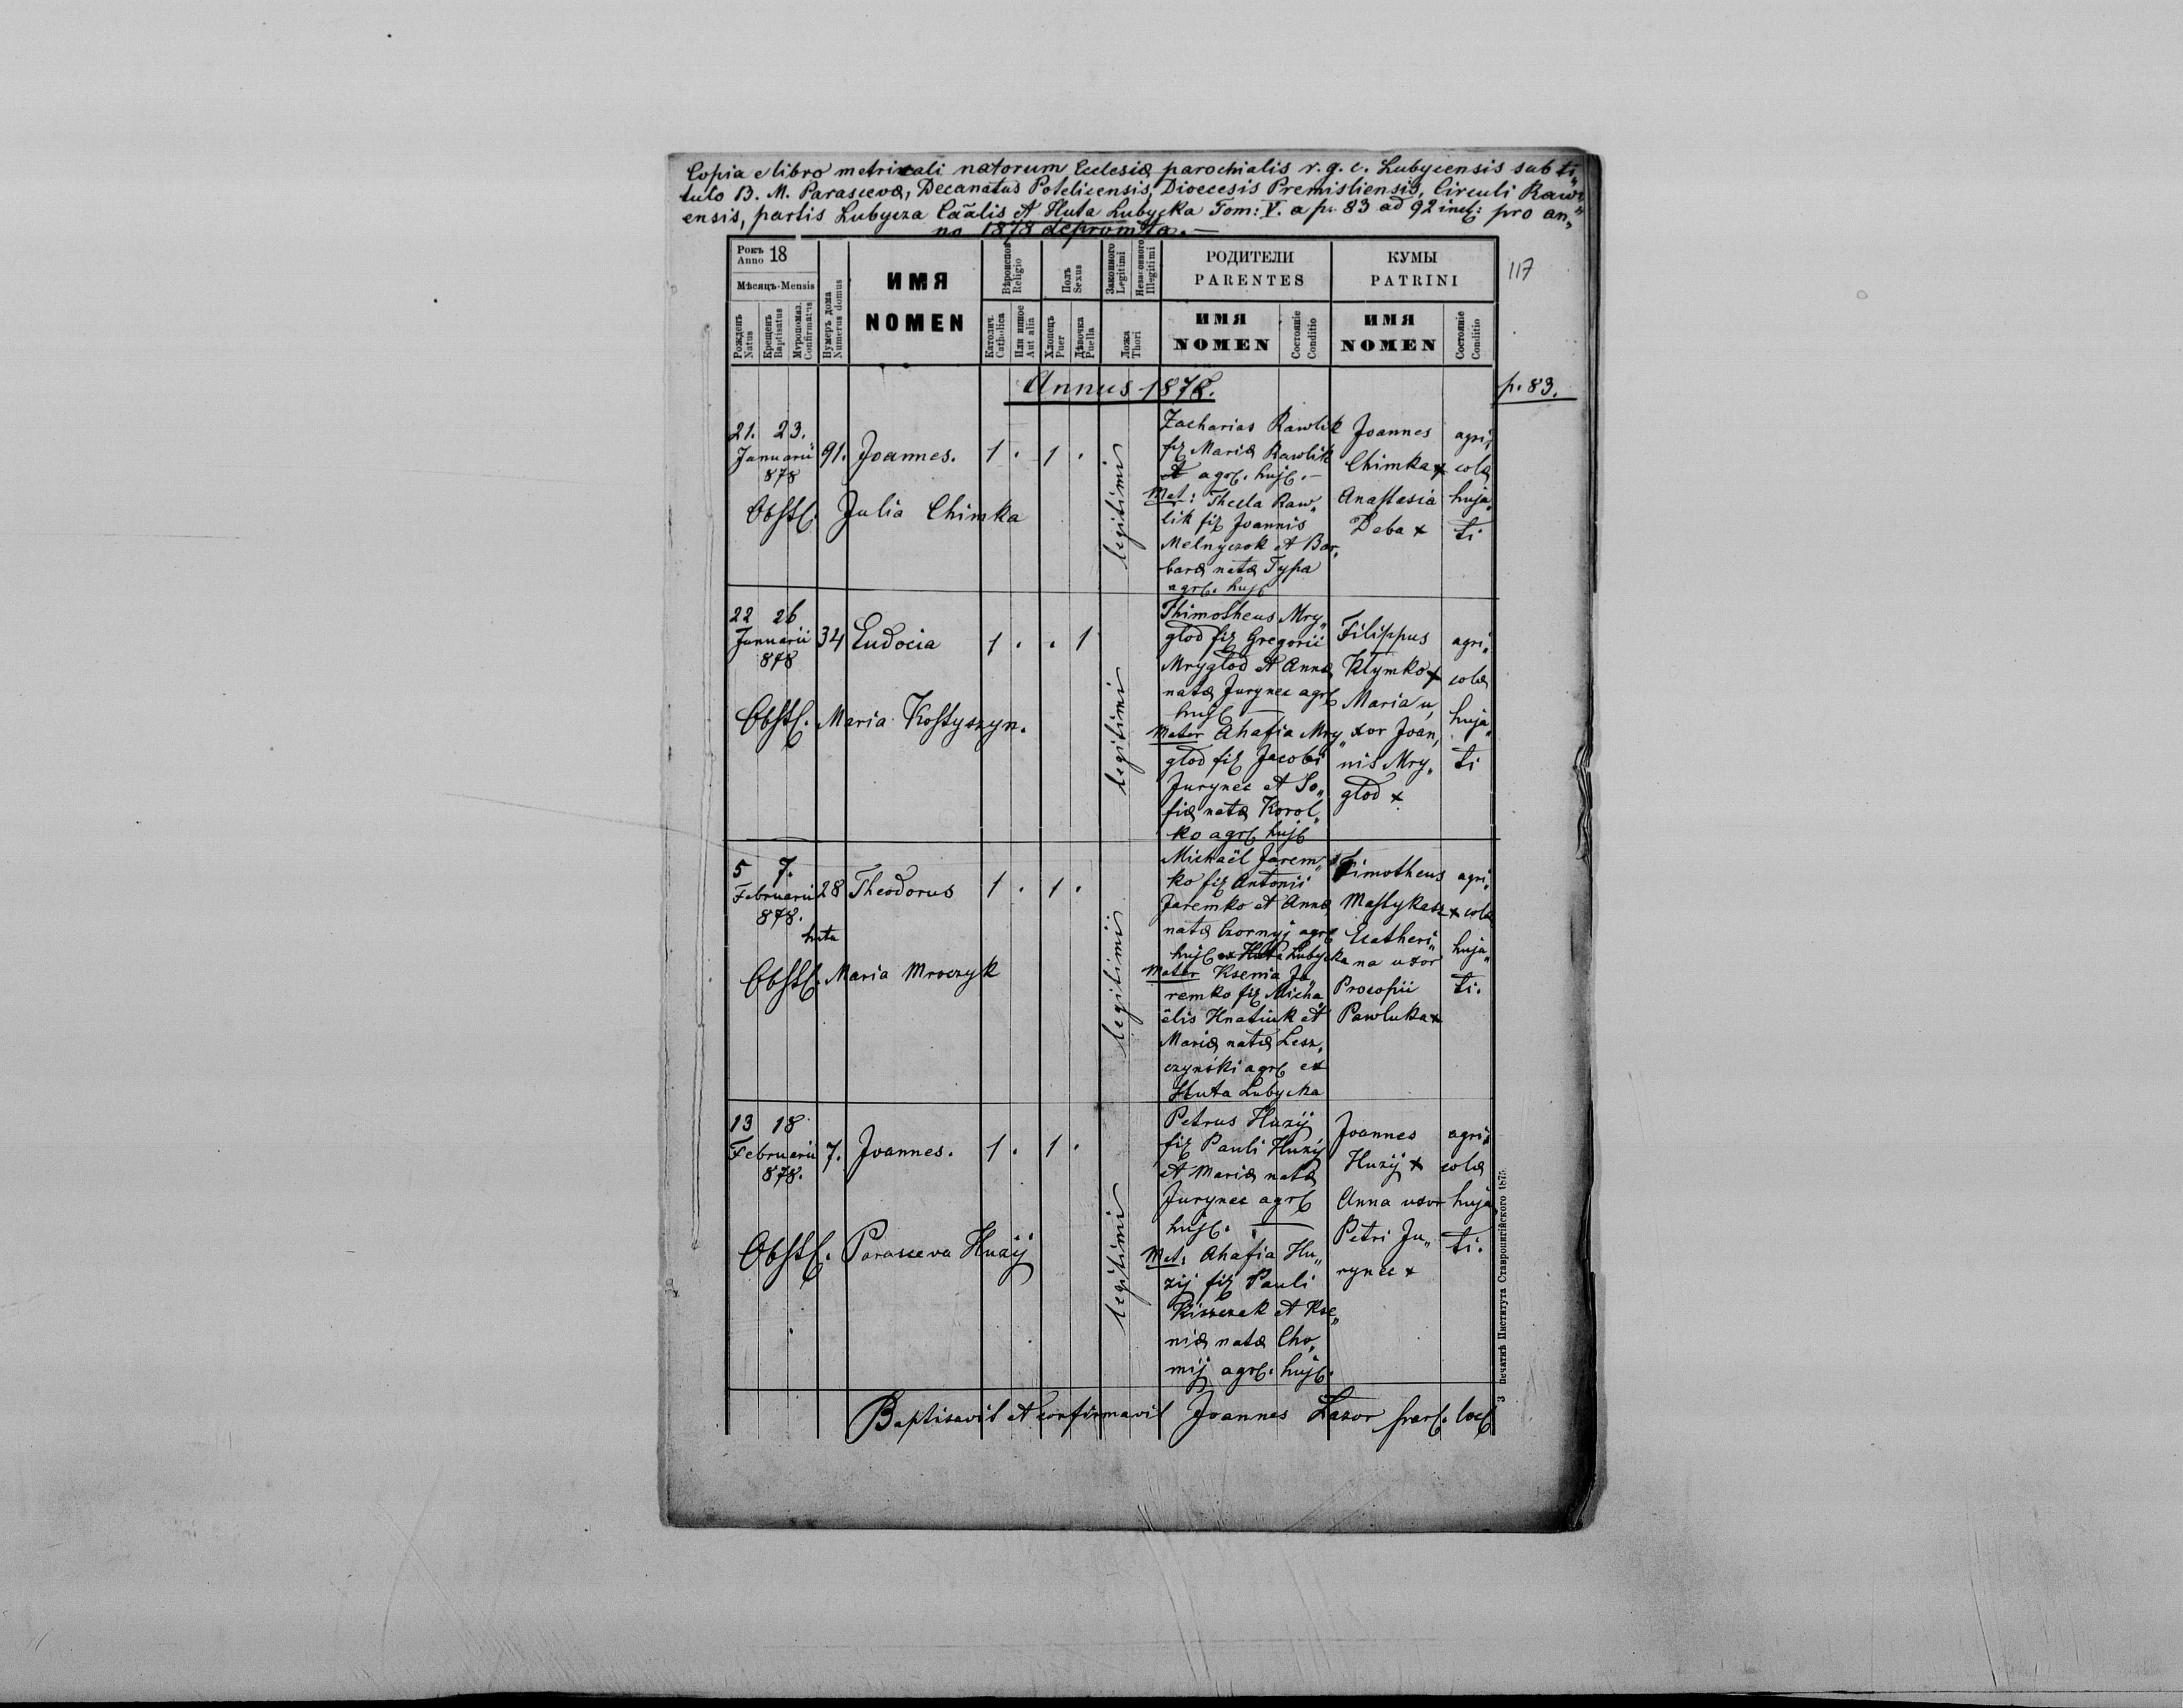 Copia e libro metricali natorum Ecclesiæ parochialis r. g. c. Lubycensis sub ti„
tulo B. M. Parascevæ, Decanatus Potelicensis, Dioecesis Premisliensis, Circuli Raw„
ensis, partis Lubycza Caãlis et Huta Lubycka Tom: V. a p. 83 ad 92 incl: pro an„
no 1878 depromta.—
117
Рокъ Anno 18
Мѣсяцъ-Mensis
Рожденъ Natus
Крещенъ Baptisatus
Мѵропомаз. Confirmatus
Нумеръ дома Numerus domus
ИМЯ
NOMEN
Вѣроисповѣ Religio
Католич. Catholica
Или инное Aut alia
Полъ Sexus
Хлопецъ Puer
Дѣвочка Puella
Законного Legitimi
Незаконного Illegitimi
Ложа Thori
РОДИТЕЛИ
PARENTES
ИМЯ
NOMEN
Состояніе Conditio
КУМЫ
PATRINI
ИМЯ
NOMEN
Состояніе Conditio
Annus 1878.
p. 83.
21. 23.
Januarii
878
91. Joannes. 1 . 1 .
Obst. Julia Chimka
legitimi
Zacharias Rawlik
fil Mariæ Rawlik
et agr. huj.—
Mat: Thecla Raw„
lik fil Joannis
Melnyczok et Bar„
baræ natæ Typa
agr. huj
Joannes
Chimka x
Anastasia
Deba x
agri„
colæ
huja„
ti
22 26
Januarii
878
34 Eudocia 1 . . 1
Obst. Maria Kostyszyn.
legitimi
Thimotheus Mry„
glod fil Gregorii
Mryglod et Annæ
natæ Jurynec agr
huj —
Mater Ahafia Mry„
glod fil Jacobi
Jurynec et So„
fiæ natæ Korol„
ko agr huj
Filippus
Klymko x
Maria u„
xor Joan„
nis Mry„
glod x
agri„
colæ
huja„
ti
5 7.
Februarii
878.
huta
28 Theodorus 1 . 1 .
Obst. Maria Mroczyk
legitimi
Michaël Jarem„
ko fil Antonii
Jaremko et Annæ
natæ Czornyj agr
huj ex Huta Lubycka
Mater Ksenia Ja„
remko fil Micha„
ëlis Hnatiuk et
Mariæ natæ Lesz„
czyński agr ex
Huta Lubycka
Timotheus
Mastykasz x
Ecatheri„
na uxor
Procopii
Pawluka x
agri„
colæ
huja„
ti.
13 18
Februarii
878.
7. Joannes. 1 . 1 .
Obst. Parasceva Huzij
legitimi
Petrus Huzij
fil Pauli Huzij
et Mariæ natæ
Jurynec agr
huj. —
Mat: Ahafia Hu„
zij fil Pauli
Kiszczak et Kse„
niæ natæ Cho„
mij agr. huj.
Joannes
Huzij x
Anna uxor
Petri Ju„
rynec x
agri„
colæ
huja„
ti.
Baptisavit et confirmavit Joannes Lazor par. loc
З печатнѣ Института Ставропигійского 1875.